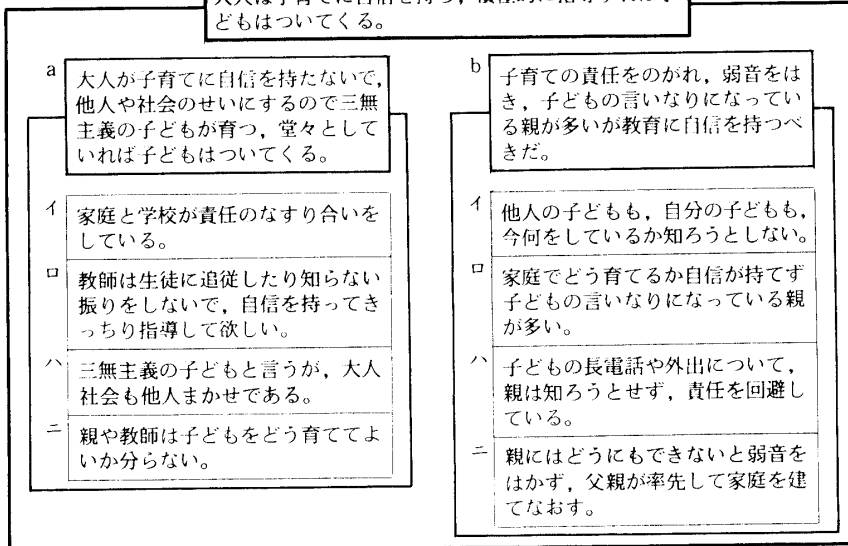 どもはついてくる。
a
大人が子育てに自信を持たないで,
他人や社会のせいにするので三無
主義の子どもが育つ,堂々として
いれば子どもはついてくる。
イ
家庭と学校が責任のなすり合いを
している。
ロ
教師は生徒に追従したり知らない
振りをしないで,自信を持ってき
っちり指導して欲しい。
ハ
三無主義の子どもと言うが,大人
社会も他人まかせである。
ニ
親や教師は子どもをどう育ててよ
いか分らない。
b
子育ての責任をのがれ,弱音をは
き,子どもの言いなりになってい
る親が多いが教育に自信を持つべ
きだ。
イ
他人の子どもも,自分の子どもも,
今何をしているか知ろうとしない。
ロ
家庭でどう育てるか自信が持てず
子どもの言いなりになっている親
が多い。
ハ
子どもの長電話や外出について,
親は知ろうとせず,責任を回避し
ている。
ニ
親にはどうにもできないと弱音を
はかず,父親が率先して家庭を建
てなおす。